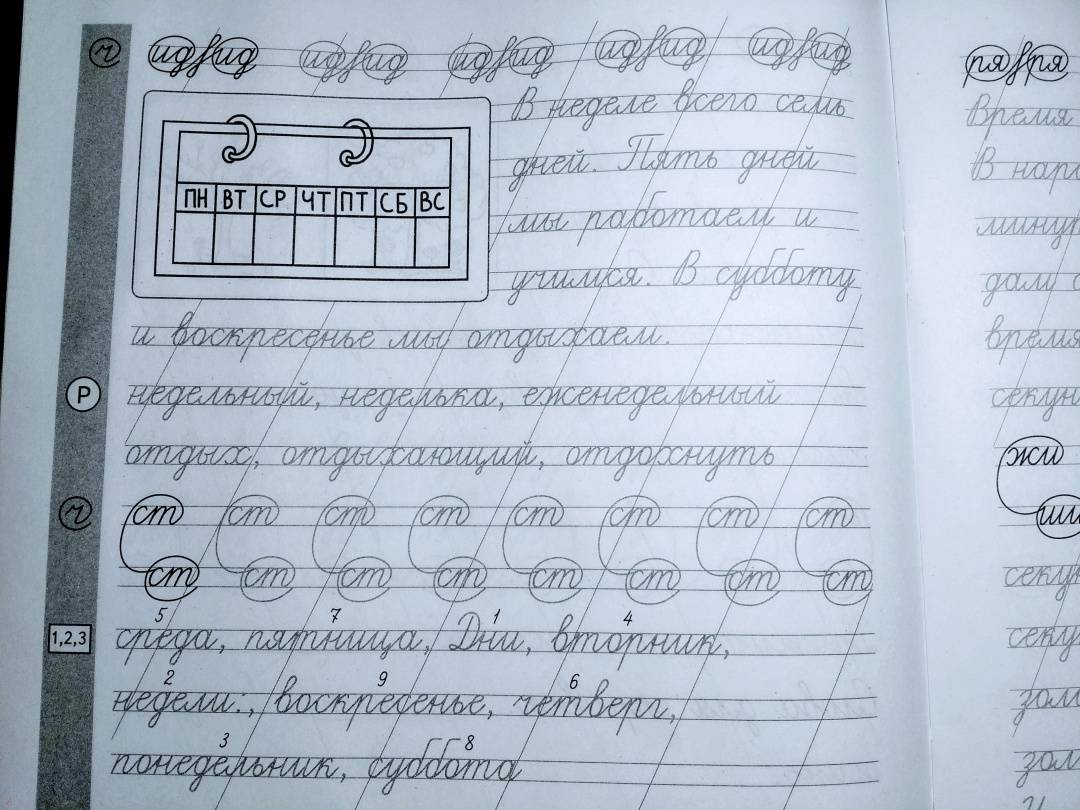 ч ид ид ид ид ид ид ид ид ид ид
В неделе всего семь
дней. Пять дней
мы работаем и
учимся. В субботу
ПН ВТ СР ЧТ ПТ СБ ВС
и воскресенье мы отдыхаем.
Р недельный, неделька, еженедельный
отдых, отдыхающий, отдохнуть
ч ст ст ст ст ст ст ст ст
ст ст ст ст ст ст ст ст
5 7 1 4
1,2,3 среда, пятница, Дни, вторник,
2 9 6
недели:, воскресенье, четверг,
3 8
понедельник, суббота
ря ря
Время
В
время
жи
ши